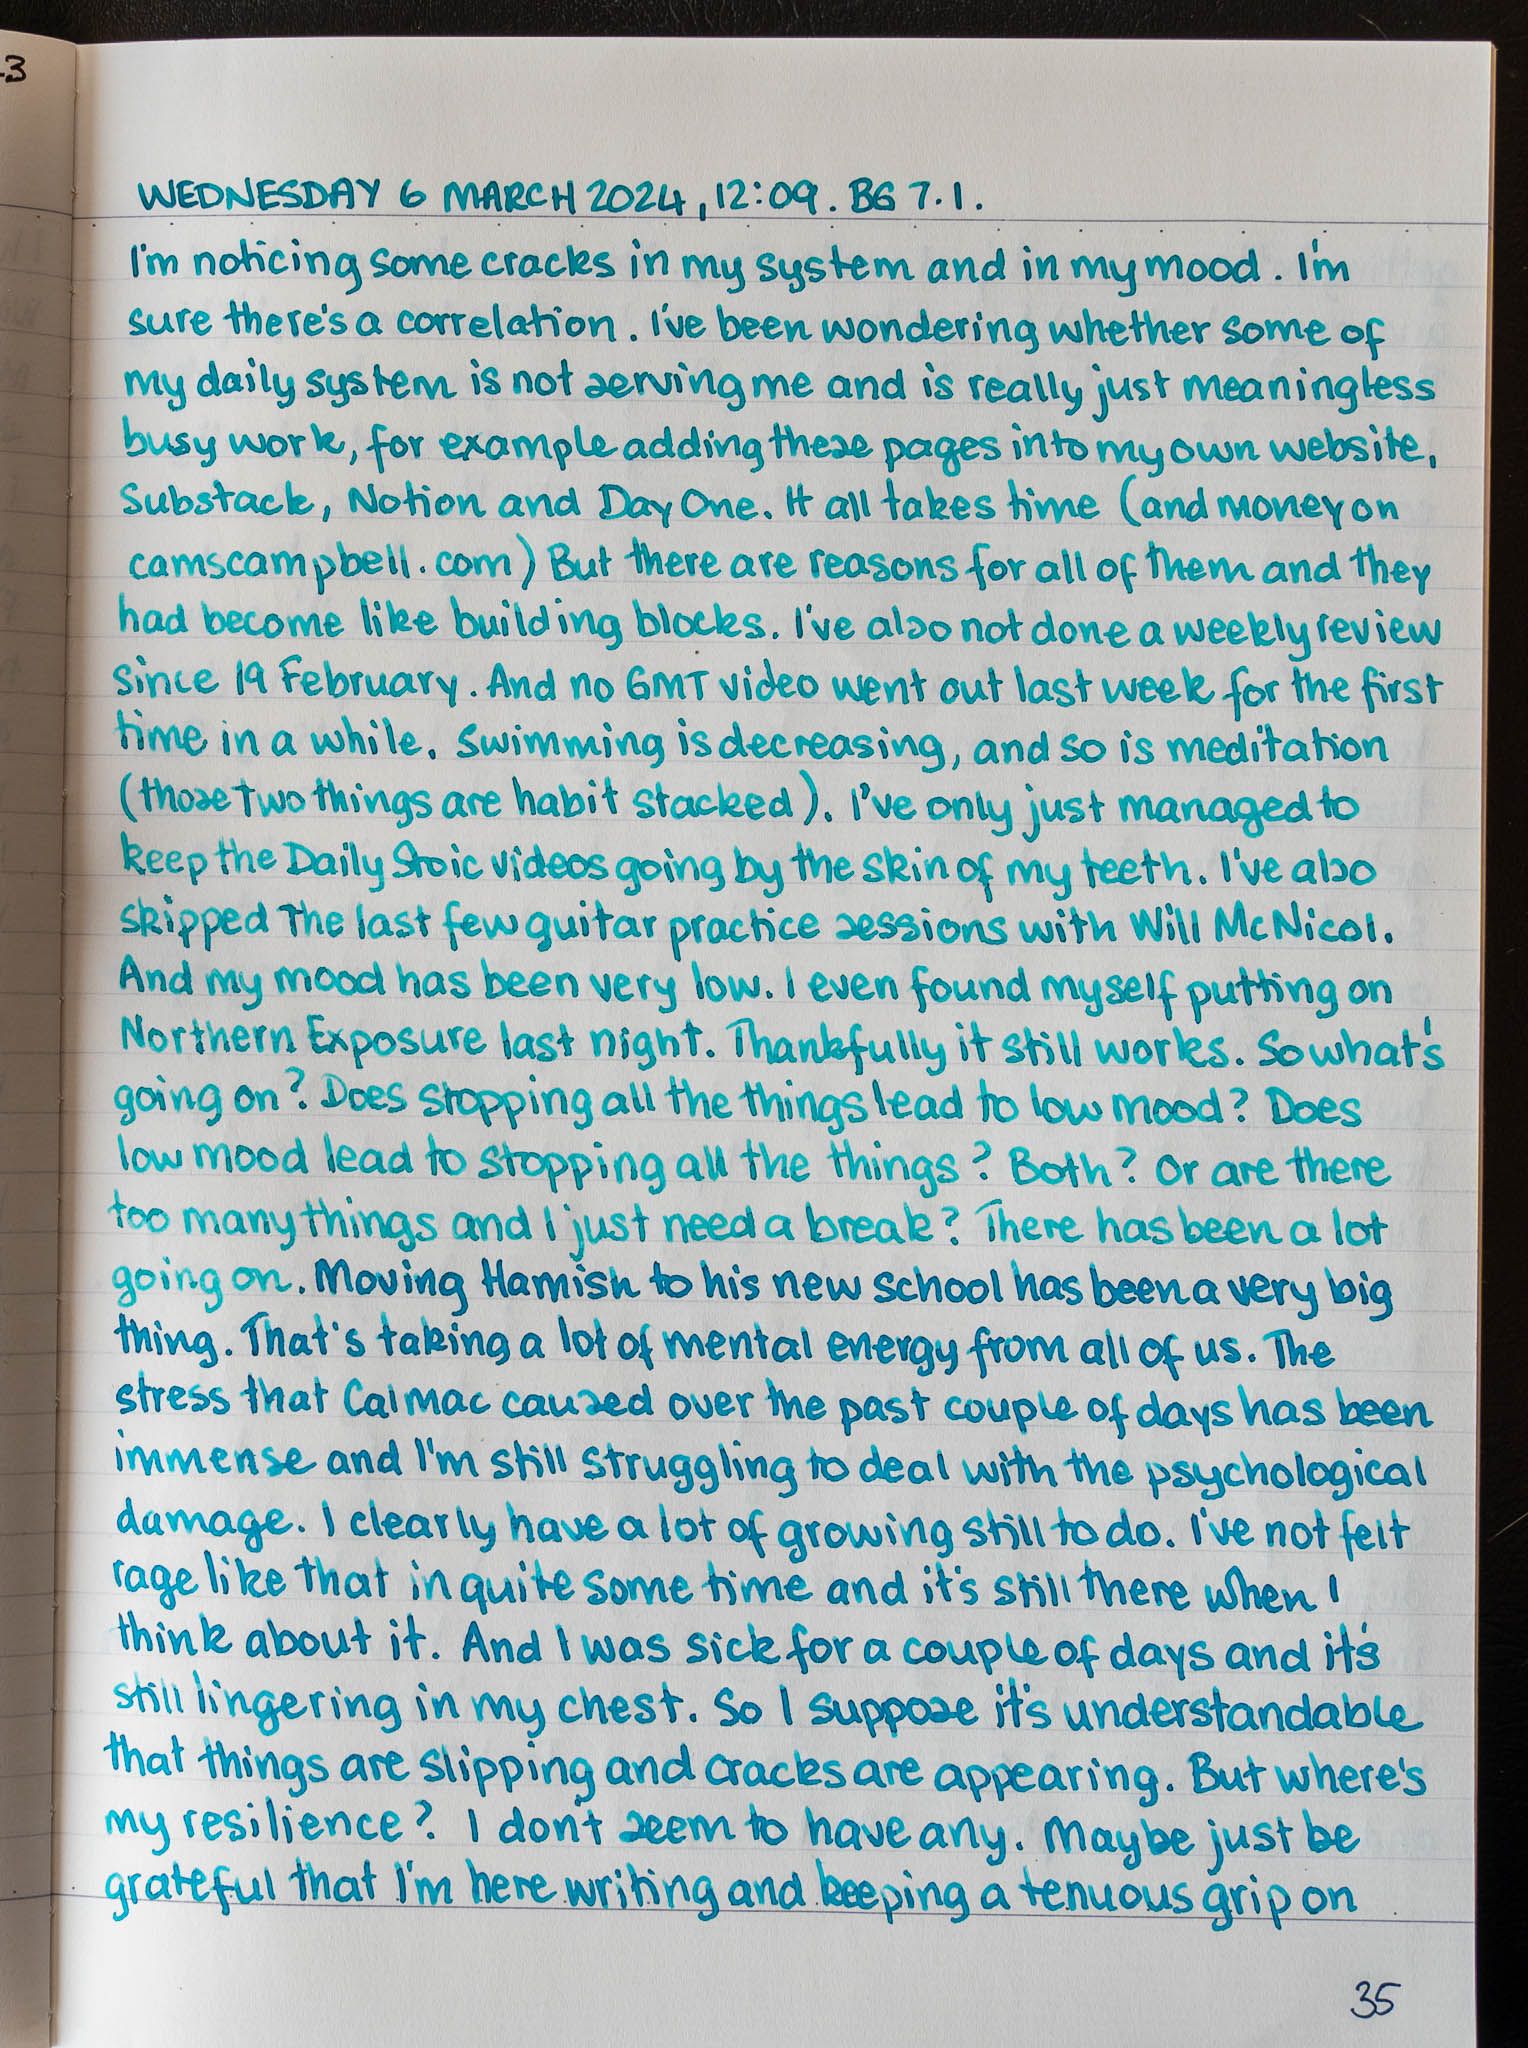 -3
WEDNESDAY 6 MARCH 2024, 12:09. BG 7.1.
I'm noticing some cracks in my system and in my mood. I'm
sure there's a correlation. I've been wondering whether some of
my daily system is not serving me and is really just meaningless
busy work, for example adding these pages into my own website,
Substack, Notion and Day One. It all takes time (and money on
camscampbell.com) But there are reasons for all of them and they
had become like building blocks. I've also not done a weekly review
since 19 February. And no GMT video went out last week for the first
time in a while. Swimming is decreasing, and so is meditation
(those two things are habit stacked). I've only just managed to
keep the Daily Stoic videos going by the skin of my teeth. I've also
skipped the last few guitar practice sessions with Will McNicol.
And my mood has been very low. I even found myself putting on
Northern Exposure last night. Thankfully it still works. So what's
going on? Does stopping all the things lead to low mood? Does
low mood lead to stopping all the things? Both? Or are there
too many things and I just need a break? There has been a lot
going on. Moving Hamish to his new school has been a very big
thing. That's taking a lot of mental energy from all of us. The
stress that CalMac caused over the past couple of days has been
immense and I'm still struggling to deal with the psychological
damage. I clearly have a lot of growing still to do. I've not felt
rage like that in quite some time and it's still there when I
think about it. And I was sick for a couple of days and it's
still lingering in my chest. So I suppose it's understandable
that things are slipping and cracks are appearing. But where's
my resilience? I don't seem to have any. Maybe just be
grateful that I'm here writing and keeping a tenuous grip on
35